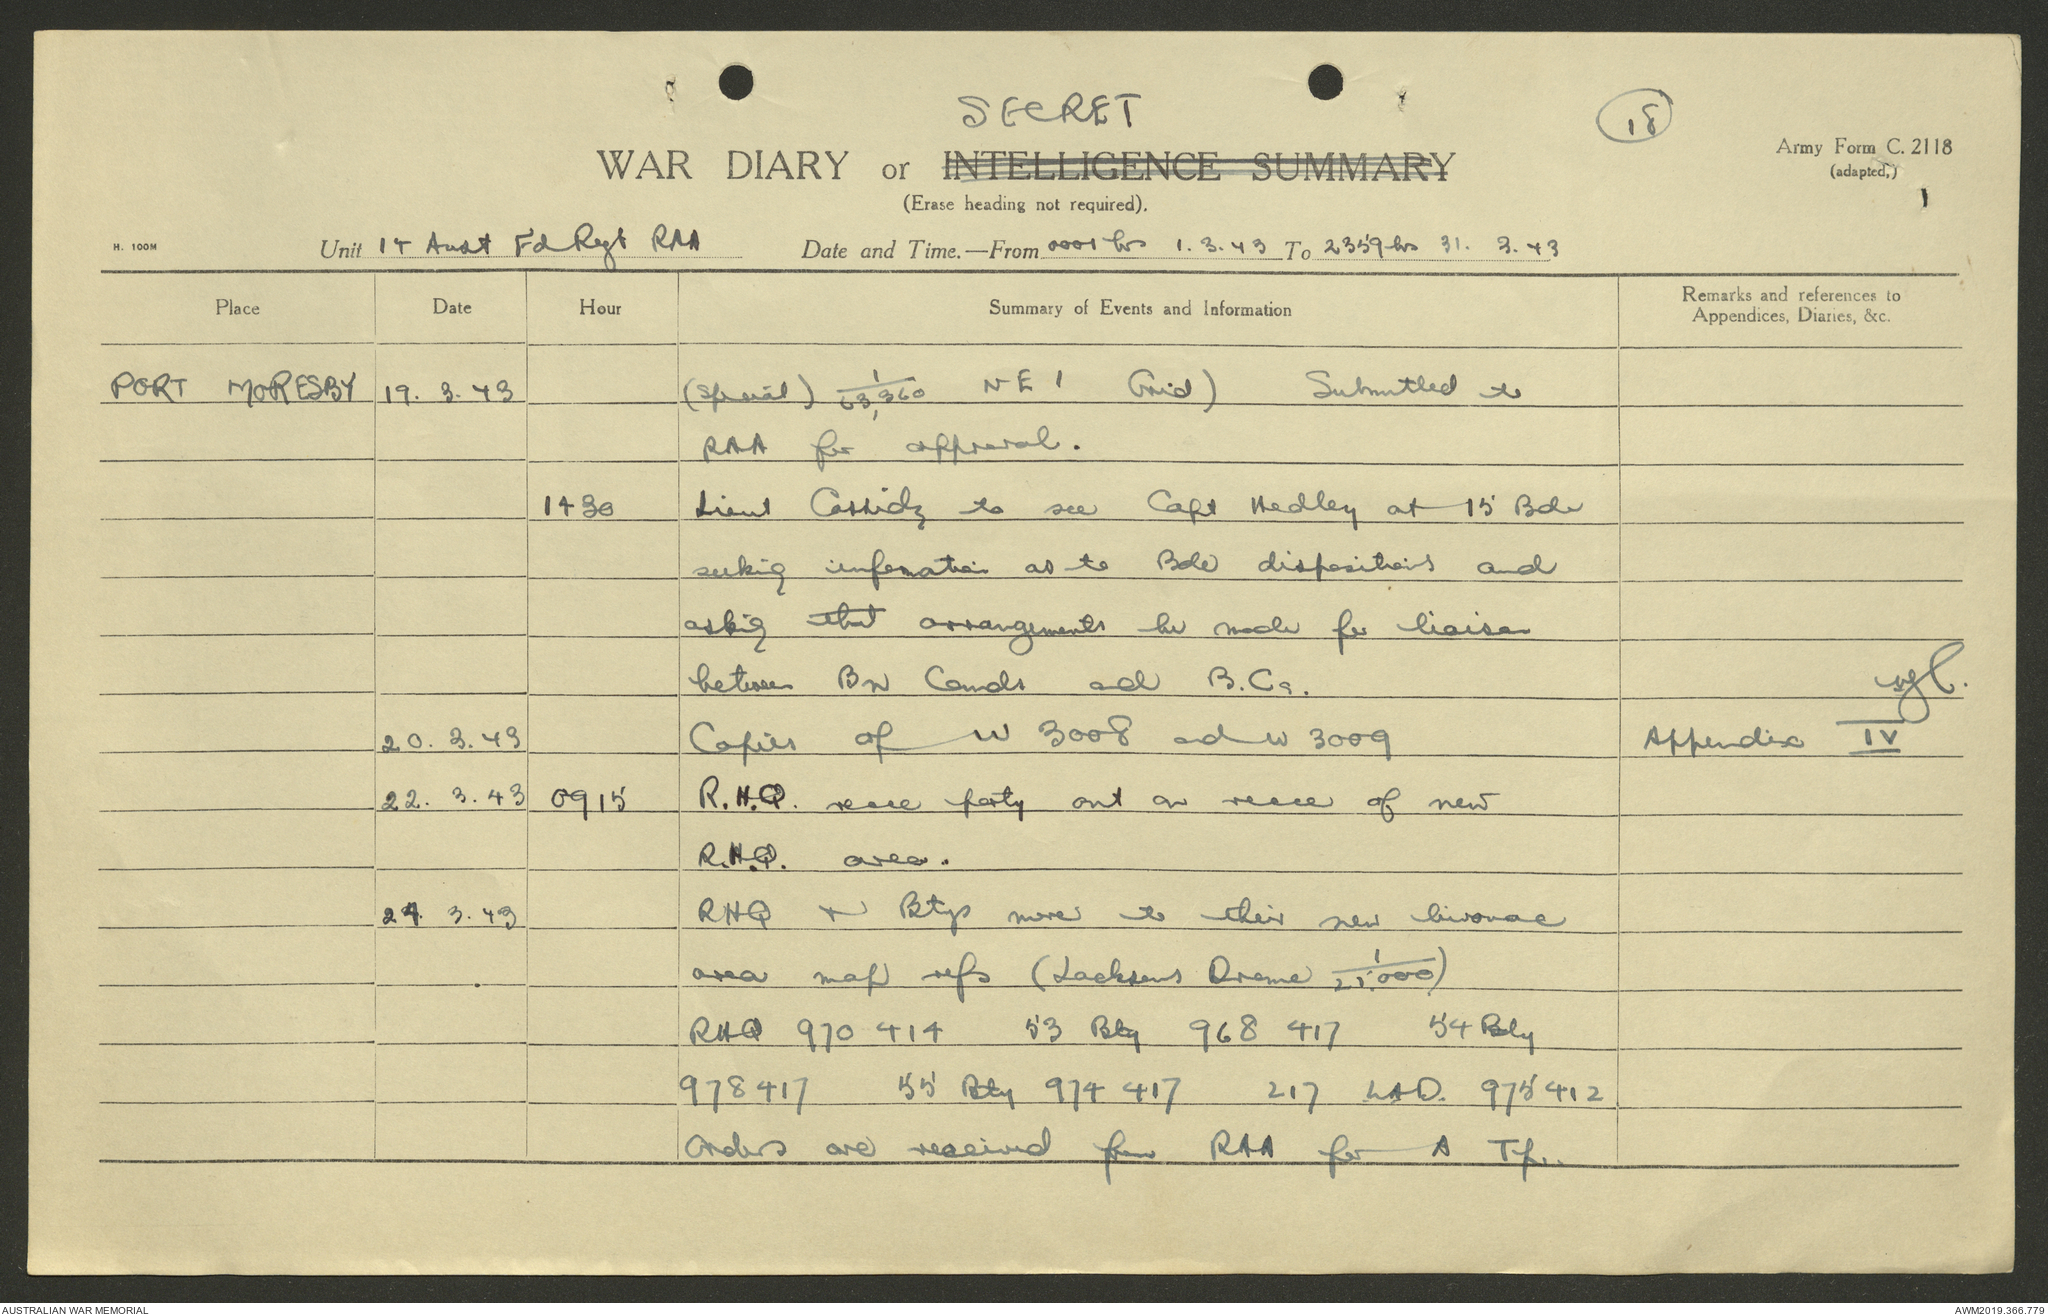 SECRET
18
WAR DIARY or INTELLIGENCE SUMMARY
(Erase heading not required).
Army Form C. 2118
(adapted,)
1
H. 100M
Unit 14 Aust Fd Regt RAA Date and Time.—From 0001 hrs 1.3.43 To 2359 hrs 31. 3.43
Place Date Hour Summary of Events and Information Remarks and references to Appendices, Diaries, &c.
PORT MORESBY 19. 3. 43 (Special) 1/63,360 NE 1 Grid) Submitted to
RAA for approval.
1430 Lieut Cassidy to see Capt Hedley at 15 Bde
seeking information as to Bde dispositions and
asking that arrangements be made for liaison
between Bn Comds and B.Cs.
20. 3. 43 Copies of W 3008 and W 3009 Appendix IV
22. 3. 43 0915 R.H.Q. recce party out on recce of new
R.H.Q. area.
24. 3. 43 RHQ & Btys move to their new bivouac
area map refs (Jacksons Drome 1/25,000)
RHQ 970 414 53 Bty 968 417 54 Bty
978417 55 Bty 974 417 217 LAD. 975412
Orders are received from RAA for A Tp..
AUSTRALIAN WAR MEMORIAL
AWM2019.366.779